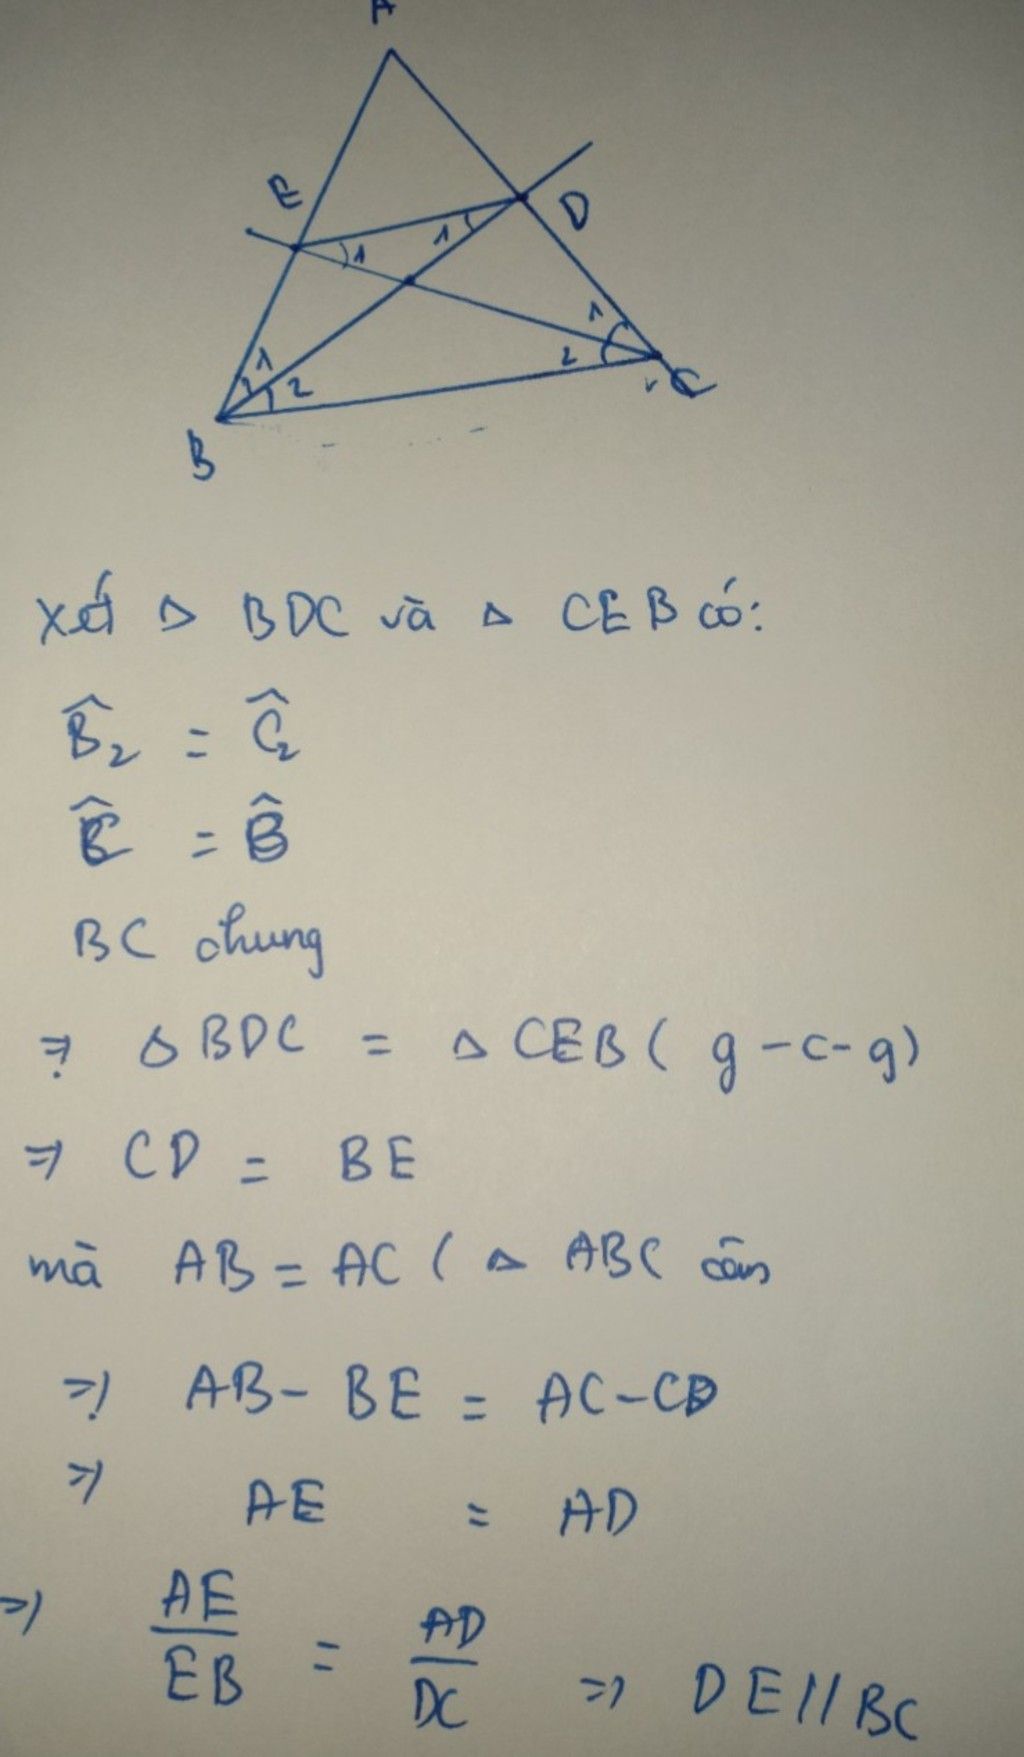 A
E
D
1
1
1
1
2
2
C
B
Xét Δ BDC và Δ CEB có:
B̂₂ = Ĉ₂
Ĉ = B̂
BC chung
=> Δ BDC = Δ CEB ( g - c - g )
=> CD = BE
mà AB = AC ( Δ ABC cân
=> AB - BE = AC - CD
=> AE = AD
=> AE/EB = AD/DC => DE // BC